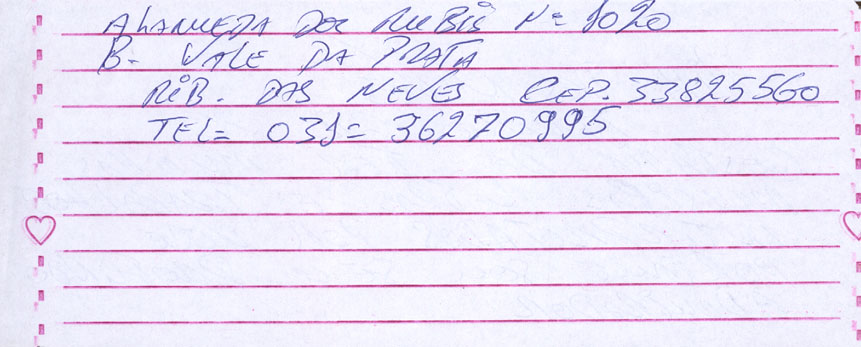 ALAMEDA DOS RUBIS Nº 1020
B- VALE DA PRATA
RIB. DAS NEVES CEP. 33825560
TEL= 031= 36270995